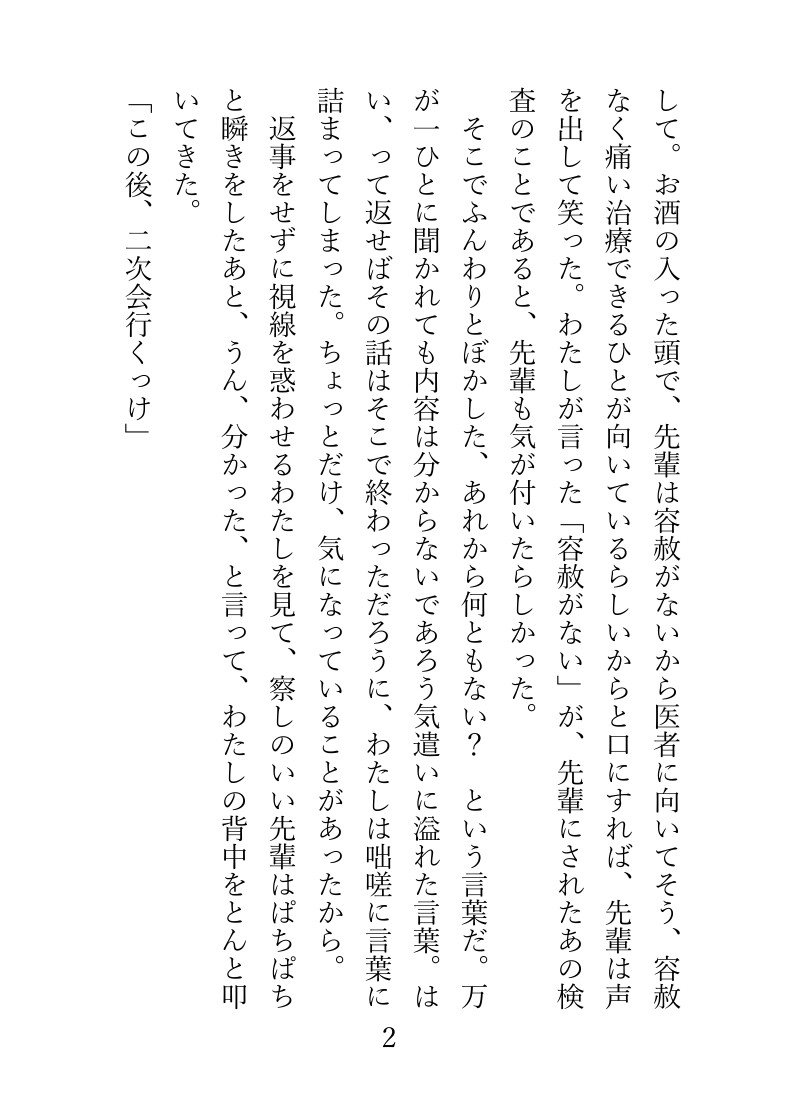 して。お酒の入った頭で、先輩は容赦がないから医者に向いてそう、容赦
なく痛い治療できるひとが向いているらしいからと口にすれば、先輩は声
を出して笑った。わたしが言った「容赦がない」が、先輩にされたあの検
査のことであると、先輩も気が付いたらしかった。
　そこでふんわりとぼかした、あれから何ともない？　という言葉だ。万
が一ひとに聞かれても内容は分からないであろう気遣いに溢れた言葉。は
い、って返せばその話はそこで終わっただろうに、わたしは咄嗟に言葉に
詰まってしまった。ちょっとだけ、気になっていることがあったから。
　返事をせずに視線を惑わせるわたしを見て、察しのいい先輩はぱちぱち
と瞬きをしたあと、うん、分かった、と言って、わたしの背中をとんと叩
いてきた。
「この後、二次会行くっけ」
2